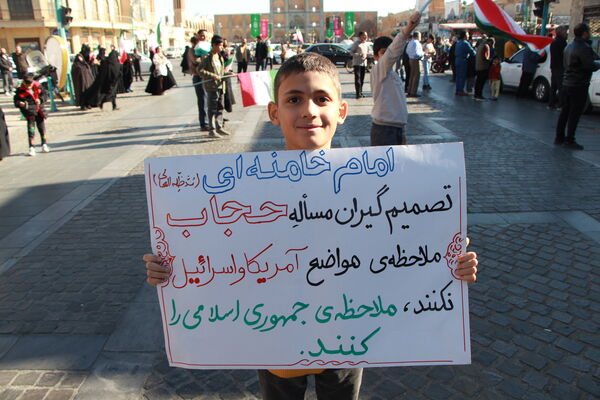 امام خامنه‌ای (مدّ ظلّه العالی)
تصمیم گیران مسألهٔ حجاب
ملاحظه‌ی مواضع آمریکا و اسرائیل
نکنند، ملاحظه‌ی جمهوری اسلامی را
کنند.